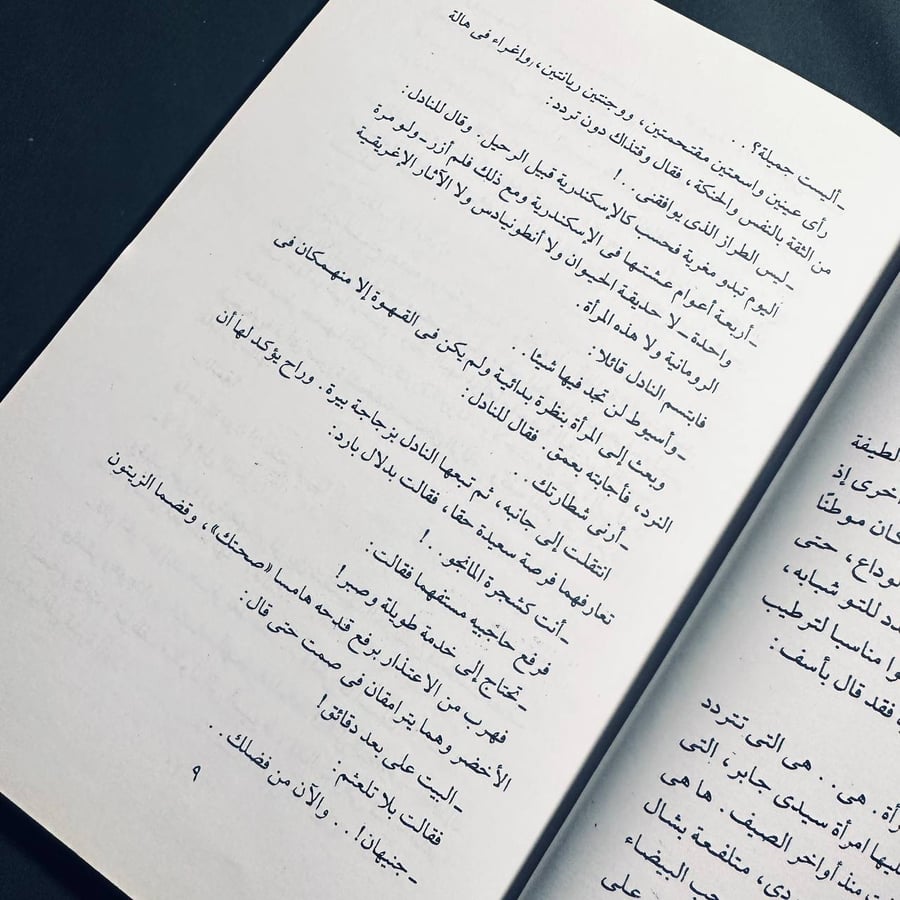 إذ
حتى
للتو شبابه،
مناسبا لترطيب
فقد قال بأسف :
هى . . هى التى تتردد
امرأة سيدى جابر، التى
منذ أواخر الصيف . ها هى
متلفعة بشال
البيضاء
على
-أليست جميلة؟ . .
رأى عينين واسعتين مقتحمتين، ووجنتين ريانتين، وإغراء فى هالة
من الثقة بالنفس والحنكة، فقال وقتذاك دون تردد:
- ليس الطراز الذى يوافقنى. .!
اليوم تبدو مغرية فحسب كالإسكندرية قبيل الرحيل. وقال للنادل:
-أربعة أعوام عشتها فى الإسكندرية ومع ذلك فلم أزر-ولو مرة
واحدة-لا حديقة الحيوان ولا أنطونيادس ولا الآثار الإغريقية
الرومانية ولا هذه المرأة.
فابتسم النادل قائلا:
-وأسيوط لن تجد فيها شيئا. .
وبعث إلى المرأة بنظرة بدائية ولم يكن فى القهوة إلا منهمكان فى
النرد، فأجابته بعمق. فقال للنادل:
-أرنى شطارتك.
انتقلت إلى جانبه، ثم تبعها النادل بزجاجة بيرة. وراح يؤكد لها أن
تعارفهما فرصة سعيدة حقا، فقالت بدلال بارد:
-أنت كشجرة المانجو. .!
فرفع حاجبيه مستفهما فقالت:
-تحتاج إلى خدمة طويلة وصبر!
فهرب من الاعتذار برفع قدحه هامسا «صحتك»، وقضما الزيتون
الأخضر وهما يترامقان فى صمت حتى قال:
-البيت على بعد دقائق!
فقالت بلا تلعثم:
-جنيهان!. . والآن من فضلك. .
٩